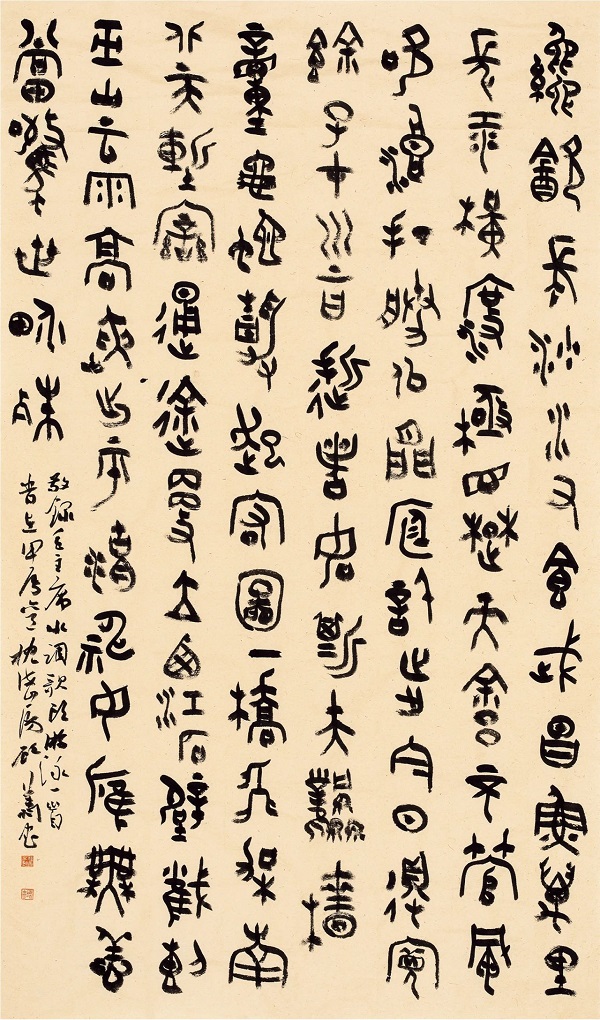 纔飲長沙水又食武昌魚萬里
長江橫渡極目楚天舒不管風
吹浪打勝似閒庭信步今日得寬
餘子在川上曰逝者如斯夫風檣
動龜蛇靜起宏圖一橋飛架南
北天塹變通途更立西江石壁截斷
巫山云雨高峽出平湖神女應無恙
當驚世界殊
敬錄毛主席水調歌頭游泳一首